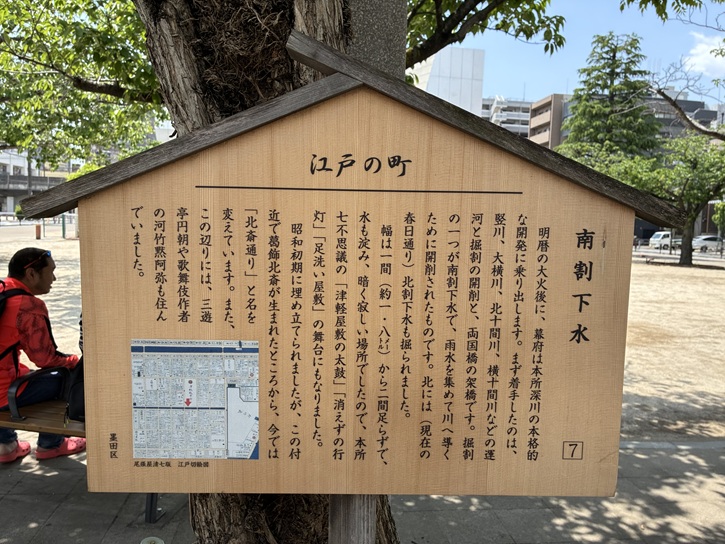 江戸の町
南割下水
7
明暦の大火後に、幕府は本所深川の本格的
な開発に乗り出します。まず着手したのは、
竪川、大横川、北十間川、横十間川などの運
河と掘割の開削と、両国橋の架橋です。掘割
の一つが南割下水で、雨水を集めて川へ導く
ために開削されたものです。北には（現在の
春日通り）北割下水も掘られました。
幅は一間（約一・八㍍）から二間足らずで、
水も淀み、暗く寂しい場所でしたので、本所
七不思議の「津軽屋敷の太鼓」「消えずの行
灯」「足洗い屋敷」の舞台にもなりました。
昭和初期に埋め立てられましたが、この付
近で葛飾北斎が生まれたところから、今では
「北斎通り」と名を
変えています。また、
この辺りには、三遊
亭円朝や歌舞伎作者
の河竹黙阿弥も住ん
でいました。
尾張屋清七版 江戸切絵図
墨田区